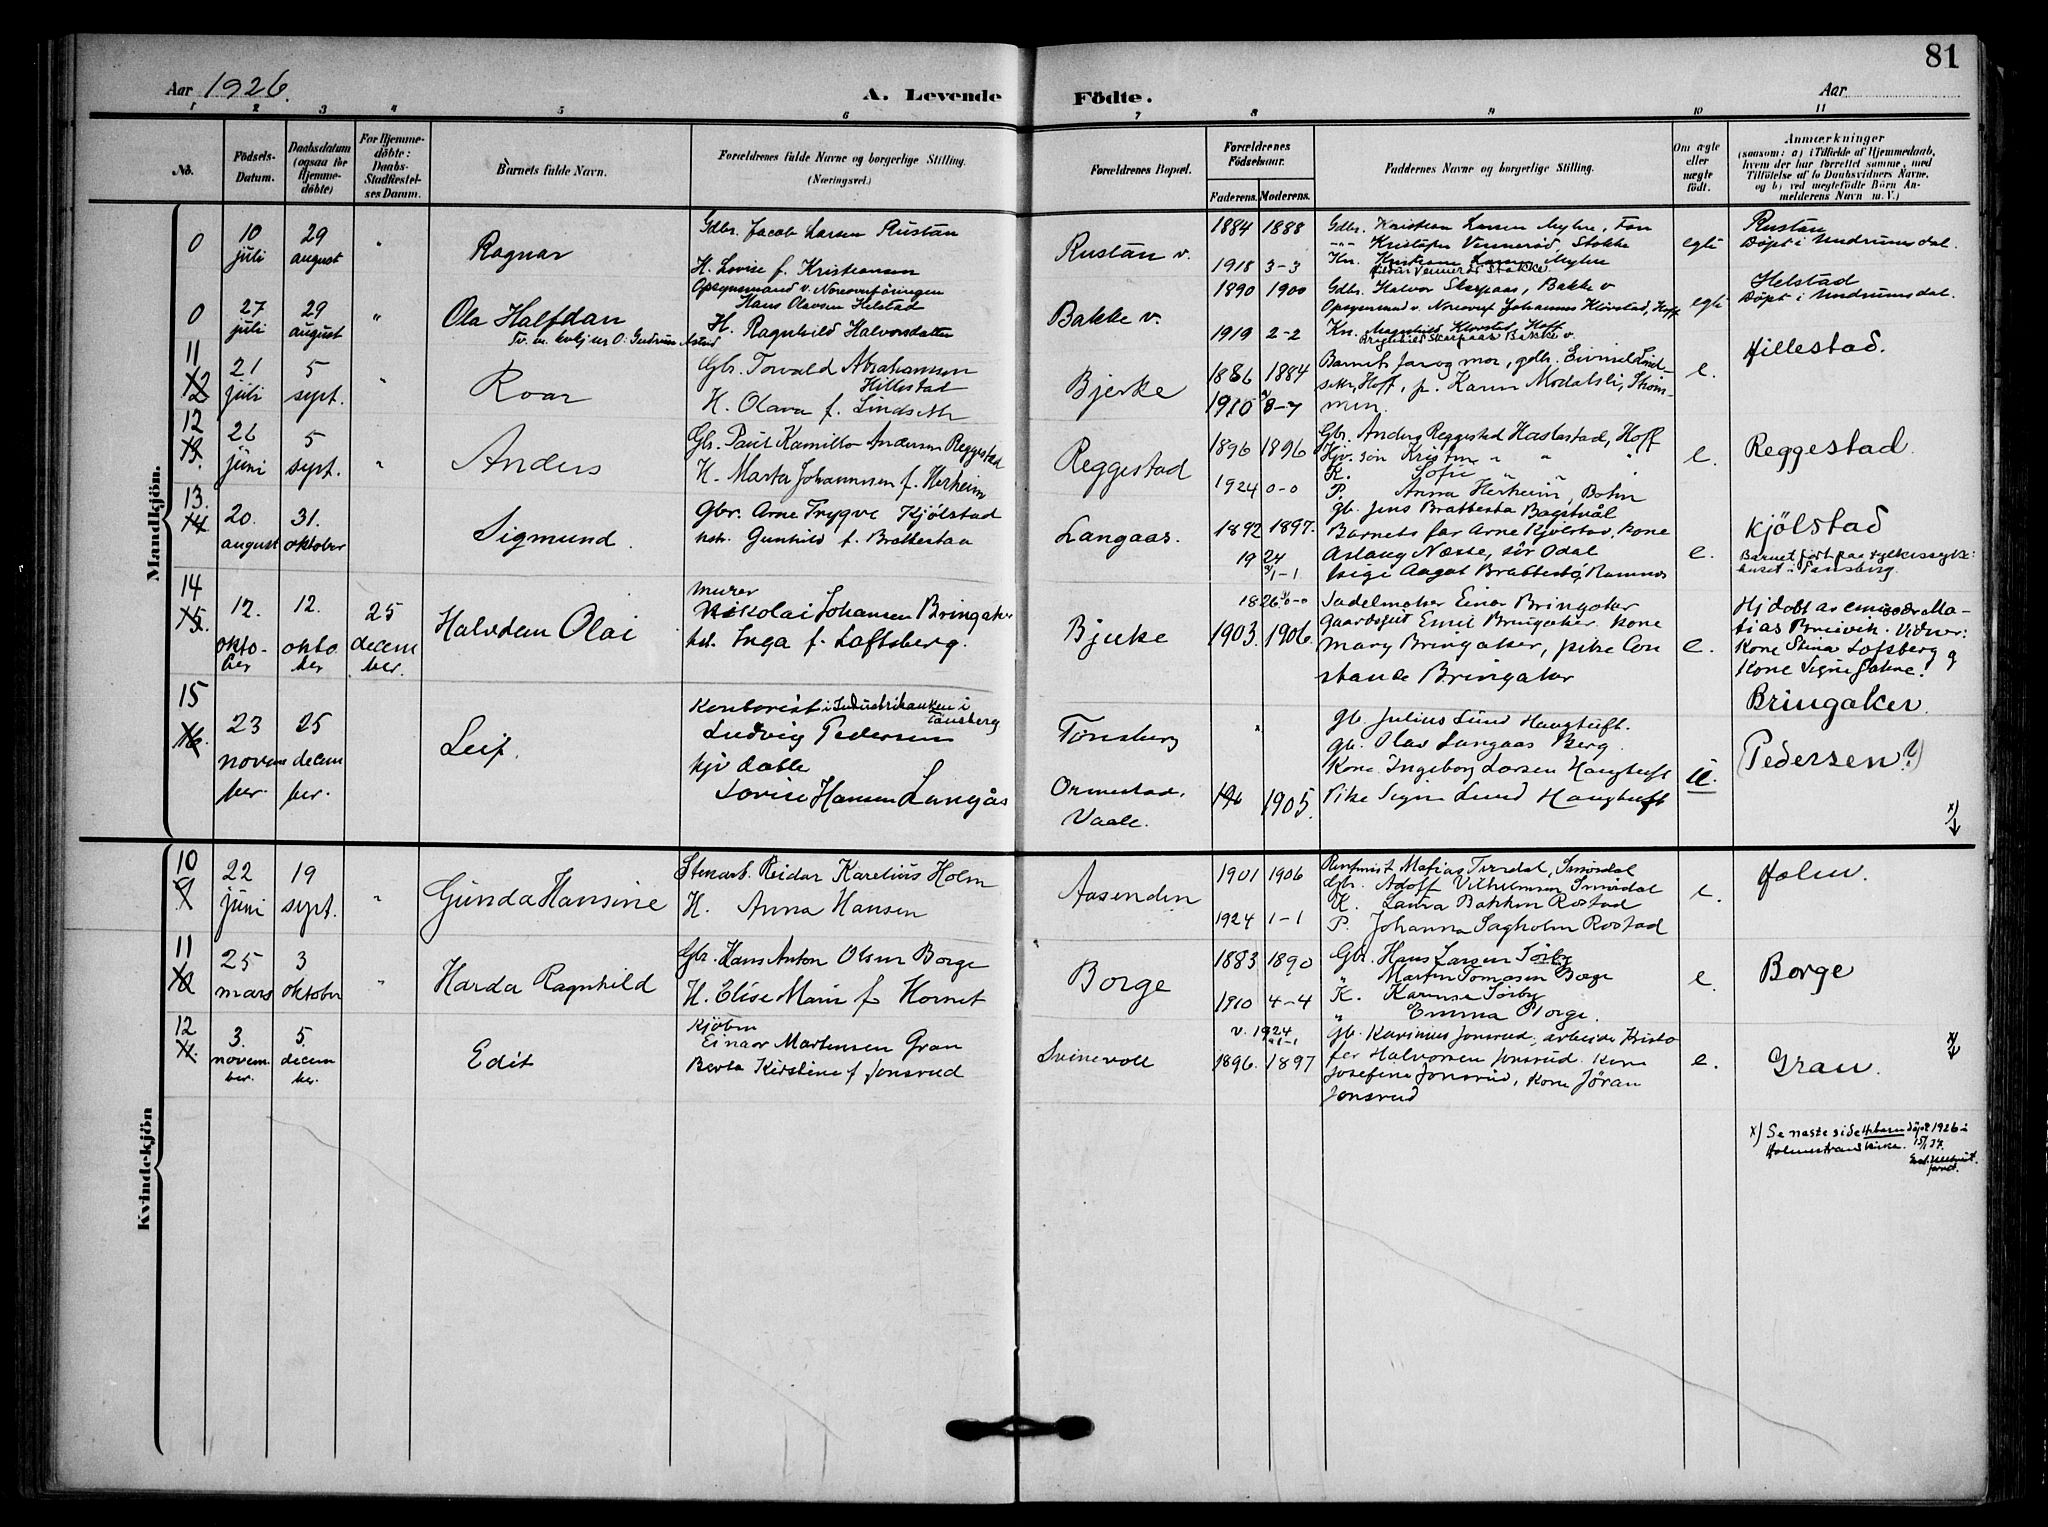 81
Aar 1926.
A. Levende Födte.
Aar
1 2 3 4 5 6 7 8 9 10 11
No.
Födsels-Datum.
Daabsdatum (ogsaa for Hjemme-döbte)
For Hjemme-döbte: Daabs-Stadfæstel-ses Datum.
Barnets fulde Navn.
Forældrenes fulde Navne og borgerlige Stilling.
(Næringsvei.)
Forældrenes Bopæl.
Forældrenes Födselsaar.
Faderens. Moderens.
Faddernes Navne og borgerlige Stilling.
Om ægte eller uægte födt.
Anmærkninger
(saasom: a) i Tilfælde af Hjemmedaab,
hvem der har forrettet samme, med
Tilföielse af to Daabsvidners Navne,
og b) ved uægtefödte Börn An-
melderens Navn m. V.)
Mandkjön.
0
10 juli
29 august
"
Ragnar
Gdbr. Jacob Larsen Rustan
H. Lovise f. Kristiansen
Rustan v.
1884 1888
1918 3-3
Gdbr. Kristian Larsen Myhre, Fon
-"- Kristofer Vennerød, Stokke
Kn. Kristiane Larsen Myhre
Vennerød Stokke
egte
Rustan
Döpt i Undrumsdal.
0
27 juli
29 august
"
Ola Halfdan
Opsynsmand v. Noreoverföringen
Hans Olavsen Helstad
H. Ragnhild Halvorsdatter
Bakke v.
1890 1900
1919 2-2
Gdbr. Halvor Skarpaas, Bakke v
Opsynsmand v. Noreovf Johannes Klövstad, Hoff
Kn. Magnhild Klovstad, Hoff
Skarpaas Bakke v.
egte
Helstad
Döpt i Undrumsdal.
11
12
21 juli
5 sept.
"
Roar
Gbr. Torvald Abrahamsen
Hillestad
H. Olava f. Lindseth
Bjerke
1886 1884
1910 8-7
Barnets far og mor, gdbr. Lind-
seth, Hoff, p. Karen Modalsli, Strøm-
men.
e.
Hillestad.
12
13.
26 juni
5 sept.
"
Anders
Gbr. Paul Kamillo Andersen Reggestad
H. Marta Johannesen f. Herheim
Reggestad
1896 1896
1924 0-0
Gbr. Anders Reggestad Haslestad, Hoff
Hjv. søn Kristian " " "
K. Sofie " " "
P. Anna Herheim, Bohn
e.
Reggestad.
13.
14
20. august
31. oktober
Sigmund.
Gbr. Arne Trygve Kjölstad
hstr. Gunhild f. Brattestaa
Langaas.
1892 1897.
1924 1-1
gb. Jens Brattestø Bagstvål
Barnets far Arne Kjölstad, kone
Aslaug Næsse, sör Odal
pige Aagot Brattestø, Ramnes
e.
Kjölstad
Barnet født paa fylkessyke-
huset i Tønsberg.
14
15.
12. oktober
12. oktober
25 december.
Halvdan Olai
murer
Nikolai Johansen Bringaker
hst. Inga f. Loftsberg.
Bjerke
1826 0-0
1903. 1906.
Sadelmaker Einar Bringaker
gaardsgut Emil Bringaker. Kone
Mary Bringaker, pike Con
stance Bringaker
e.
Hjdøbt av emisær Ma-
tias Breivik. Vidner:
Kone Stina Lofsberg og
Kone Signe
Bringaker.
15
16.
23 november.
25 december.
Leif.
Kontorist i Industribanken i
Tønsberg
Ludvig Pedersen
Lovise Hansen Langås
Tönsberg
Ormestad,
Vaale.
1905.
gb. Julius Lund Haugtuft.
gb. Olav Langaas Berg.
Kone Ingeborg Larsen Haugtuft
Pike Signe Lund Haugtuft
u.
(Pedersen?)
x)
Kvindekjön
10
9
22 juni
19 sept.
"
Gunda Hansine
Stenarb. Reidar Karelius Holm
H. Anna Hansen
Aasenden
1901 1906
1924 1-1
Matias Tverdal, Smørdal
Gbr. Adolf Vilhelmsen Smördal
K. Laura Bakken Rostad
P. Johanna Sagholm Rostad
e.
Holm.
11
10
25 mars
3 oktober
"
Harda Ragnhild
Gbr. Hans Anton Olsen Borge
H. Elise Marie f Hornet
Borge
1883 1890
1910 4-4
Gbr. Hans Larsen Sörby
" Martin Tomasen Borge
K. Karense Sörby
" Emma Borge.
e.
Borge
12
11.
3. november.
5. december.
Edit
Kjöbm
Einar Martensen Gran
Berta Kirstine f Jonsrud
Svinevoll
v. 1924
1-1
1896. 1897
Gb. Karinius Jonsrud, arbeider Kristo
fer Halvorsen Jonsrud. Kone
Josefine Jonsrud, Kone Jöran
Jonsrud
e.
Gran.
x)
x) Se næste side 4 barn döpt 1926 i
Holmestrand kirke. 15/1 27.